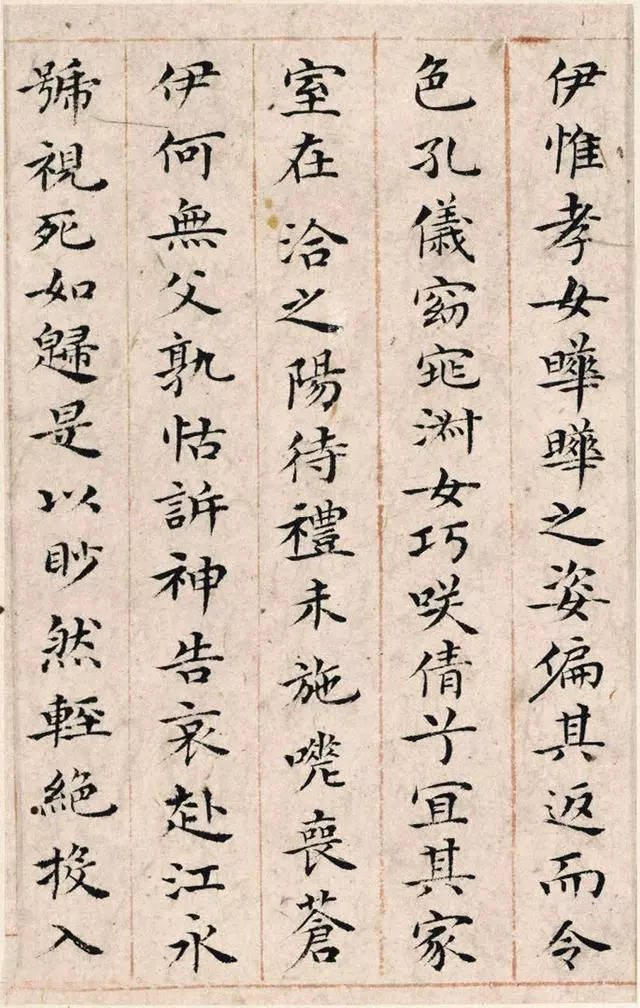 伊惟孝女曄曄之姿偏其返而令
色孔儀窈窕淑女巧咲倩兮宜其家
室在洽之陽待禮未施嗟喪蒼
伊何無父孰怙訴神告哀赴江永
號視死如歸是以眇然輕絕投入